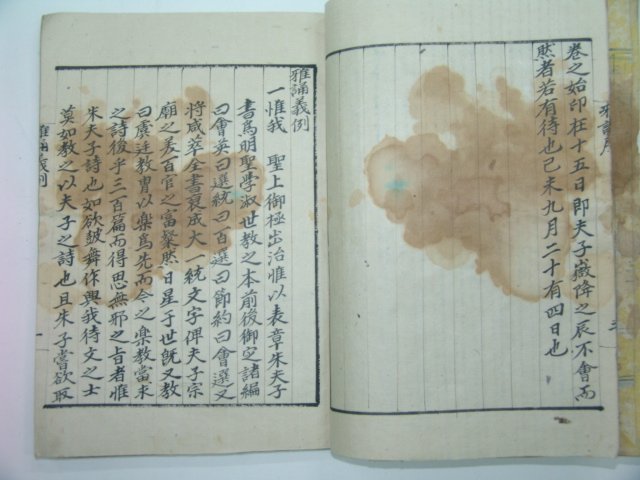 卷之始印在十五日即夫子嶽降之辰不會而
然者若有待也己未九月二十有四日也
雅誦義例
一惟我 聖上御極出治惟以表章朱夫子
書爲明聖學淑世教之本前後御定諸編
曰會英曰選統曰百選曰節約曰會選又
將咸萃全書裒成大一統文字俾夫子宗
廟之美百官之富粲然日星于世旣又教
曰虞廷教冑以樂爲先而今之樂教當求
之詩後乎三百篇而得思無邪之旨者惟
朱夫子詩也如欲皷舞作興我待文之士
莫如教之以夫子之詩也且朱子嘗欲取
雅誦義例